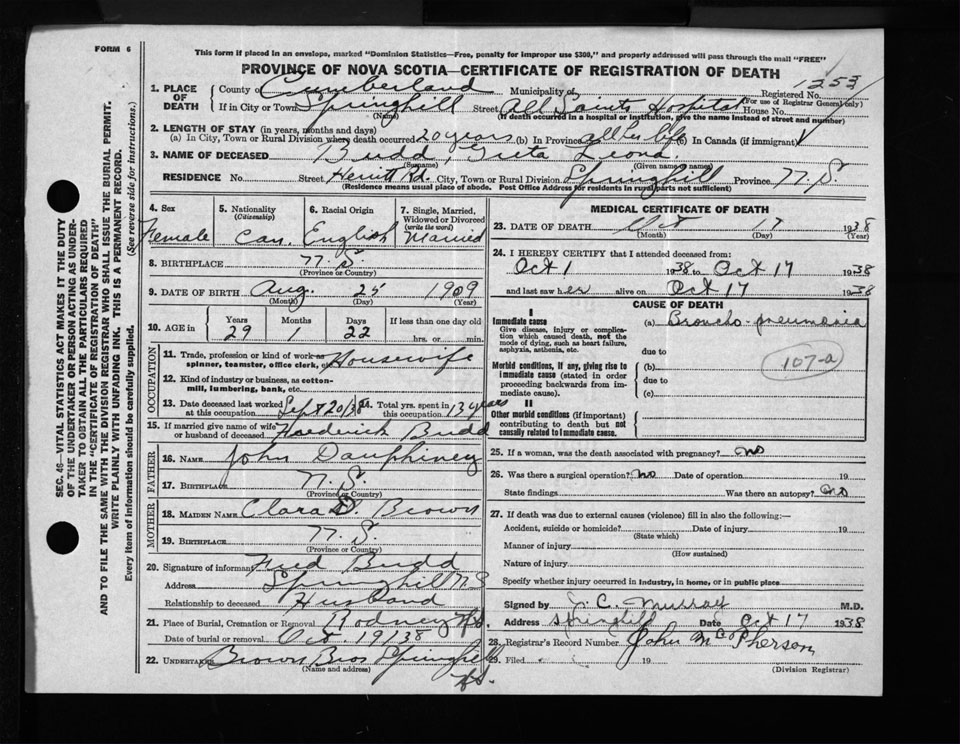 FORM 6
This form if placed in an envelope, marked "Dominion Statistics—Free, penalty for improper use $300," and properly addressed will pass through the mail "FREE"
PROVINCE OF NOVA SCOTIA—CERTIFICATE OF REGISTRATION OF DEATH
1253
1. PLACE OF DEATH County of Cumberland Municipality of Registered No.
(For use of Registrar General only)
If in City or Town Springhill Street All Saints Hospital House No.
(Name) (If death occurred in a hospital or institution, give the name instead of street and number)
2. LENGTH OF STAY (in years, months and days)
(a) In City, Town or Rural Division where death occurred 20 years (b) In Province all her life (c) In Canada (if immigrant)
3. NAME OF DECEASED Budd, Greta Leona
(Surname) (Given name or names)
RESIDENCE No. Street Herritt Rd. City, Town or Rural Division Springhill Province N.S.
(Residence means usual place of abode. Post Office Address for residents in rural parts not sufficient)
4. Sex Female
5. Nationality (Citizenship) Can.
6. Racial Origin English
7. Single, Married, Widowed or Divorced (write the word) Married
8. BIRTHPLACE N.S.
(Province or Country)
9. DATE OF BIRTH Aug. 25 1909
(Month) (Day) (Year)
10. AGE in Years Months Days If less than one day old
29 1 22 hrs. or min.
OCCUPATION
11. Trade, profession or kind of work as spinner, teamster, office clerk, etc. Housewife
12. Kind of industry or business, as cotton-mill, lumbering, bank, etc.
13. Date deceased last worked at this occupation Sept 20/38
14. Total yrs. spent in this occupation 13 years
15. If married give name of wife or husband of deceased Frederick Budd
FATHER
16. NAME John Dauphiney
17. BIRTHPLACE N.S.
(Province or Country)
MOTHER
18. MAIDEN NAME Clara D. Brown
19. BIRTHPLACE N.S.
(Province or Country)
20. Signature of informant Fred Budd
Address Springhill N.S
Relationship to deceased Husband
21. Place of Burial, Cremation or Removal Rodney N.S.
Date of burial or removal Oct. 19/38
22. UNDERTAKER Brown Bros Springhill N.S.
(Name and address)
MEDICAL CERTIFICATE OF DEATH
23. DATE OF DEATH Oct 17 1938
(Month) (Day) (Year)
24. I HEREBY CERTIFY that I attended deceased from:
Oct 1 1938 to Oct 17 1938
and last saw her alive on Oct 17 1938
CAUSE OF DEATH
I
Immediate cause
Give disease, injury or complication which caused death, not the mode of dying, such as heart failure, asphyxia, asthenia, etc.
(a) Broncho-pneumonia
due to
107-a
Morbid conditions, if any, giving rise to immediate cause (stated in order proceeding backwards from immediate cause).
(b)
due to
(c)
II
Other morbid conditions (if important) contributing to death but not causally related to immediate cause.
25. If a woman, was the death associated with pregnancy? no
26. Was there a surgical operation? no Date of operation 19
State findings Was there an autopsy? no
27. If death was due to external causes (violence) fill in also the following:—
Accident, suicide or homicide? Date of injury 19
(State which)
Manner of injury
(How sustained)
Nature of injury
Specify whether injury occurred in industry, in home, or in public place
Signed by J. C. Murray M.D.
Address Springhill Date Oct 17 1938
28. Registrar's Record Number
John McPherson
29. Filed 19
(Division Registrar)
SEC. 46—VITAL STATISTICS ACT MAKES IT THE DUTY
OF THE UNDERTAKER OR PERSON ACTING AS UNDER-
TAKER TO OBTAIN ALL THE PARTICULARS REQUIRED
IN THE "CERTIFICATE OF REGISTRATION OF DEATH"
AND TO FILE THE SAME WITH THE DIVISION REGISTRAR WHO SHALL ISSUE THE BURIAL PERMIT.
WRITE PLAINLY WITH UNFADING INK. THIS IS A PERMANENT RECORD.
Every item of information should be carefully supplied. (See reverse side for instructions.)